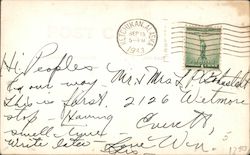 POST C
KETCHIKAN, ALASKA
SEP 13
5-PM
1943
Hi Peoples
On our way - Mr & Mrs L. P.
This is first 2126 Wetmore
stop - Having Everett,
swell time - Wn.
Write later - Love